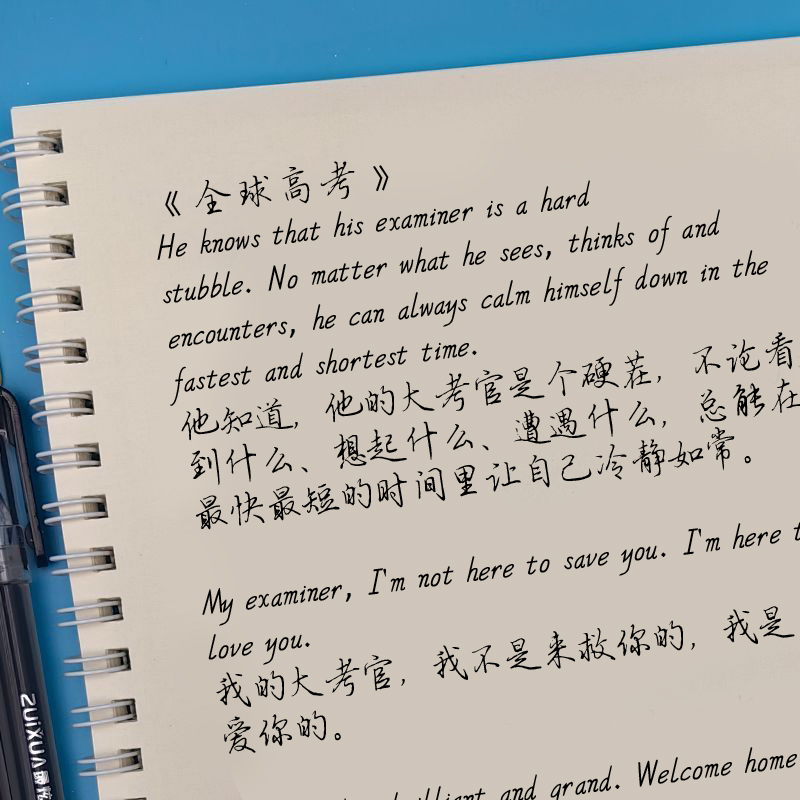 《全球高考》
He knows that his examiner is a hard
stubble. No matter what he sees, thinks of and
encounters, he can always calm himself down in the
fastest and shortest time.
他知道，他的大考官是个硬茬，不论看
到什么、想起什么、遭遇什么，总能在
最快最短的时间里让自己冷静如常。
My examiner, I'm not here to save you. I'm here t
love you.
我的大考官，我不是来救你的，我是
爱你的。
brilliant and grand. Welcome home
ZUIXUA